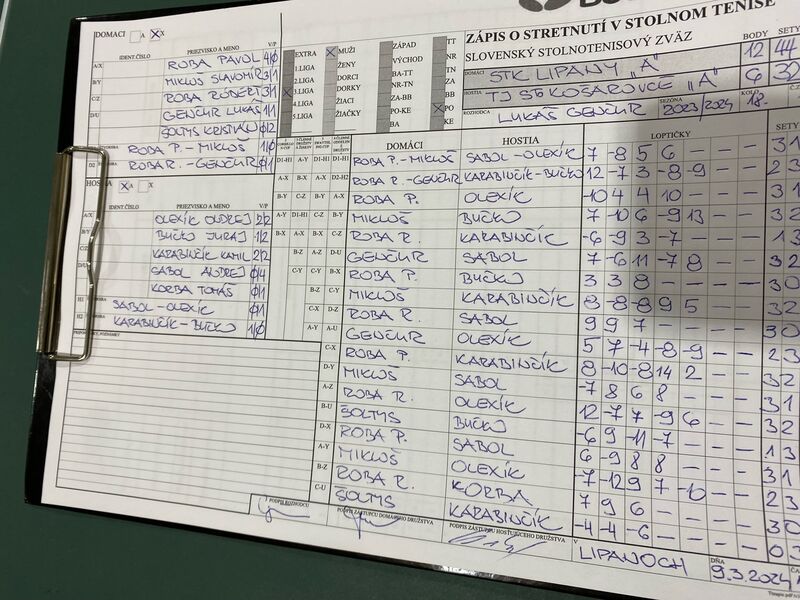 ZÁPIS O STRETNUTÍ V STOLNOM TENISE
SLOVENSKÝ STOLNOTENISOVÝ ZVÄZ
BODY SETY
DOMÁCI STK LIPANY "A" 12 44
HOSTIA TJ ŠK KOŠAROVCE "A" 6 32
ROZHODCA LUKÁŠ GENČUR SEZÓNA 2023/2024 18.
DOMÁCI A X X
IDENT.ČÍSLO PRIEZVISKO A MENO V/P
A/X ROBA PAVOL 4/0
B/Y MIKLOŠ SLAVOMÍR 3/1
C/Z ROBA RÓBERT 3/1
D/U GENČUR LUKÁŠ 1/1
ŠOLTYS KRISTIÁN 0/2
ROBA P. - MIKLOŠ 1/0
D2 ROBA R. - GENČUR 0/1
EXTRA
1.LIGA
2.LIGA
3.LIGA
4.LIGA
5.LIGA
MUŽI
ŽENY
DORCI
DORKY
ŽIACI
ŽIAČKY
ZÁPAD
VÝCHOD
BA-TT
NR-TN
ZA-BB
PO-KE
BA
TT
NR
TN
ZA
BB
PO
KE
HOSTIA A X X
IDENT.ČÍSLO PRIEZVISKO A MENO V/P
A/X OLEXÍK ONDREJ 2/2
B/Y BUČKO JURAJ 1/2
C/Z KARABINČÍK KAMIL 2/2
D/U SABOL ANDREJ 0/4
KORBA TOMÁŠ 0/1
H1 SABOL - OLEXÍK 0/1
H2 KARABINČÍK - BUČKO 1/0
DOMÁCI HOSTIA LOPTIČKY SETY
ROBA P. - MIKLOŠ SABOL - OLEXÍK 7 -8 5 6 - 3 1
ROBA R. - GENČUR KARABINČÍK - BUČKO 12 -7 3 -8 -9 - - 2 3
ROBA P. OLEXÍK -10 4 4 10 - - - 3 1
MIKLOŠ BUČKO 7 -10 6 -9 13 - - 3 2
ROBA R. KARABINČÍK -6 -9 3 -7 - - - 1 3
GENČUR SABOL 7 -6 11 -7 8 - - 3 2
ROBA P. BUČKO 3 3 8 - - - - 3 0
MIKLOŠ KARABINČÍK 8 -8 -8 9 5 - - 3 2
ROBA R. SABOL 9 9 7 - - - - 3 0
GENČUR OLEXÍK 5 7 -4 -8 -9 - - 2 3
ROBA P. KARABINČÍK 8 -10 -8 14 2 - - 3 2
MIKLOŠ SABOL -7 8 6 8 - - - 3 1
ROBA R. OLEXÍK 12 -7 7 -9 6 - - 3 2
ŠOLTYS BUČKO -6 9 -11 -7 - - - 1 3
ROBA P. SABOL 6 -9 8 8 - - - 3 1
MIKLOŠ OLEXÍK -7 -12 9 7 -10 - - 2 3
ROBA R. KORBA 7 9 6 - - - - 3 0
ŠOLTYS KARABINČÍK -4 -4 -6 - - - - 0 3
PODPIS ROZHODCU
PODPIS ZÁSTUPCU DOMÁCEHO DRUŽSTVA
PODPIS ZÁSTUPCU HOSŤUJÚCEHO DRUŽSTVA
V LIPANOCH DŇA 9.3.2024